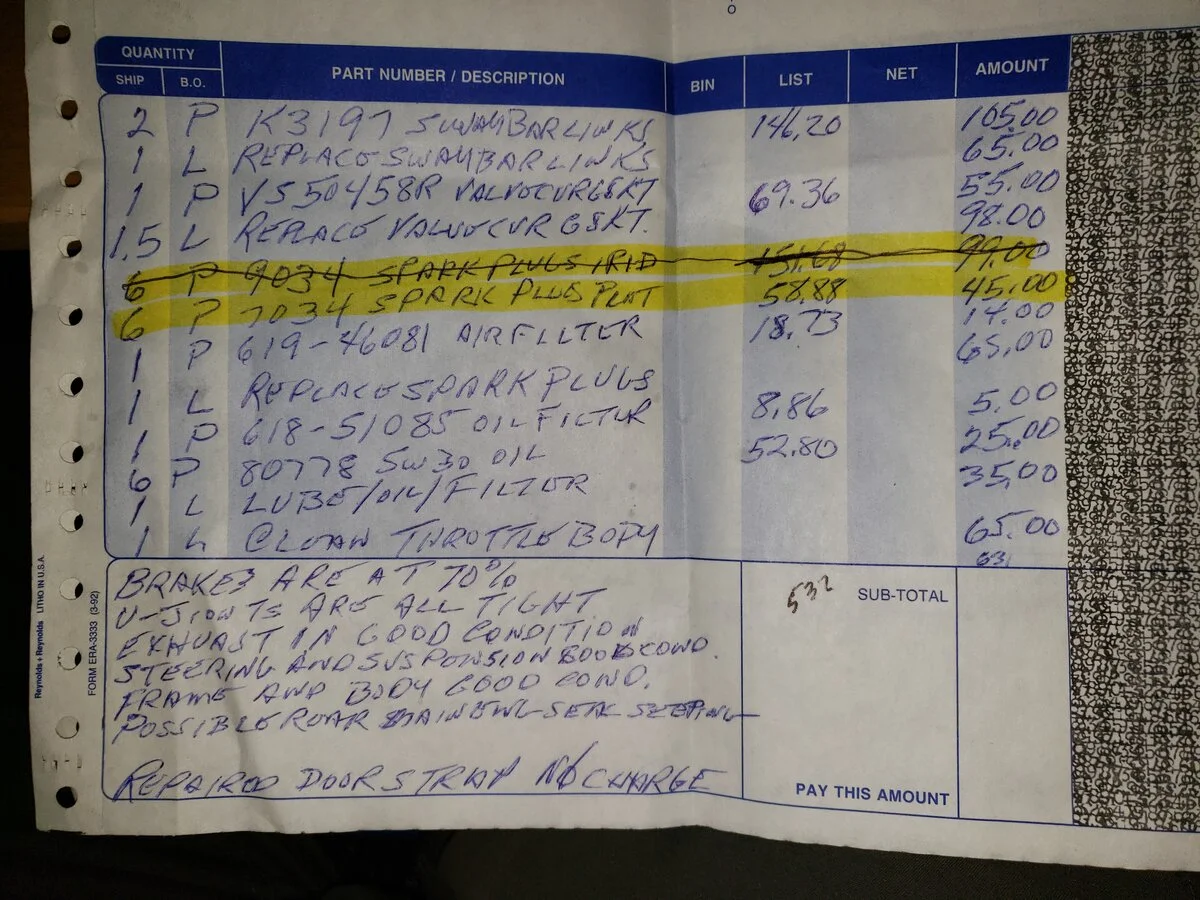 QUANTITY
SHIP B.O. PART NUMBER / DESCRIPTION BIN LIST NET AMOUNT
2 P K3197 SWAYBAR LINKS 146.20 105.00
1 L REPLACE SWAYBAR LINKS 65.00
1 P VS50458R VALVOCVRGSKT 69.36 55.00
1.5 L REPLACE VALVOCVR GSKT. 98.00
6 P 9034 SPARK PLUGS IRID 151.68 99.00
6 P 7034 SPARK PLUGS PLAT 58.88 45.00
1 P 619-46081 AIRFILTER 18.73 14.00
1 L REPLACE SPARK PLUGS 65.00
1 P 618-51085 OIL FILTER 8.86 5.00
6 P 80778 5W30 OIL 52.80 25.00
1 L LUBE/OIL/FILTER 35.00
1 L CLEAN THROTTLE BODY 65.00
631
BRAKES ARE AT 70%
532 SUB-TOTAL
U-JIONTS ARE ALL TIGHT
EXHUAST IN GOOD CONDITION
STEERING AND SUSPONSION GOOD COND.
FRAME AND BODY GOOD COND.
POSSIBLE REAR MAIN ENG SEAL SEEPING
REPAIRED DOOR STRAP NO CHARGE
PAY THIS AMOUNT
Reynolds + Reynolds LITHO IN U.S.A.
FORM ERA-3333 (3-92)